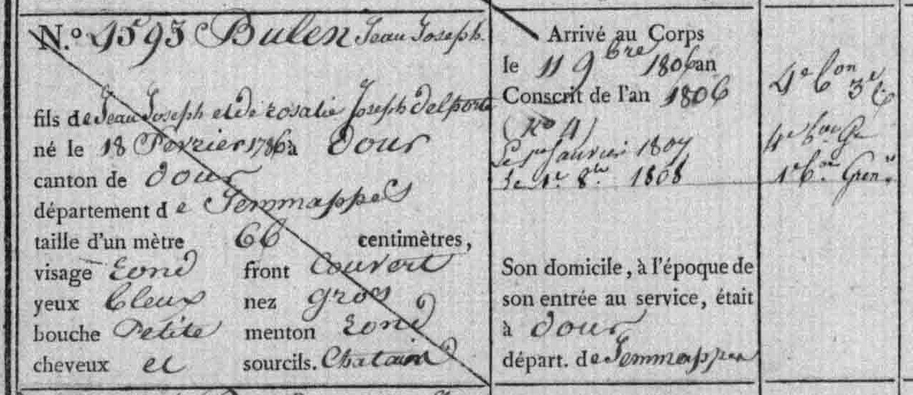 N.º 4593 Bulen Jean Joseph.
fils de Jean Joseph et de rosalie Joseph delporte
né le 18 Fevrier 1786 à Dour
canton de Dour
département de Jemmappes
taille d'un mètre 66 centimètres,
visage rond front Couvert
yeux bleux nez gros
bouche Petite menton rond
cheveux et sourcils. Chatain
Arrivé au Corps
le 11 9bre 1806 an
Conscrit de l'an 1806
Le 1er Janvier 1807
Le 1er 8bre 1808
Son domicile, à l'époque de
son entrée au service, était
à Dour
départ. de Jemmappes
4e bon 3e Cie
4e bon
1er bon Gren.